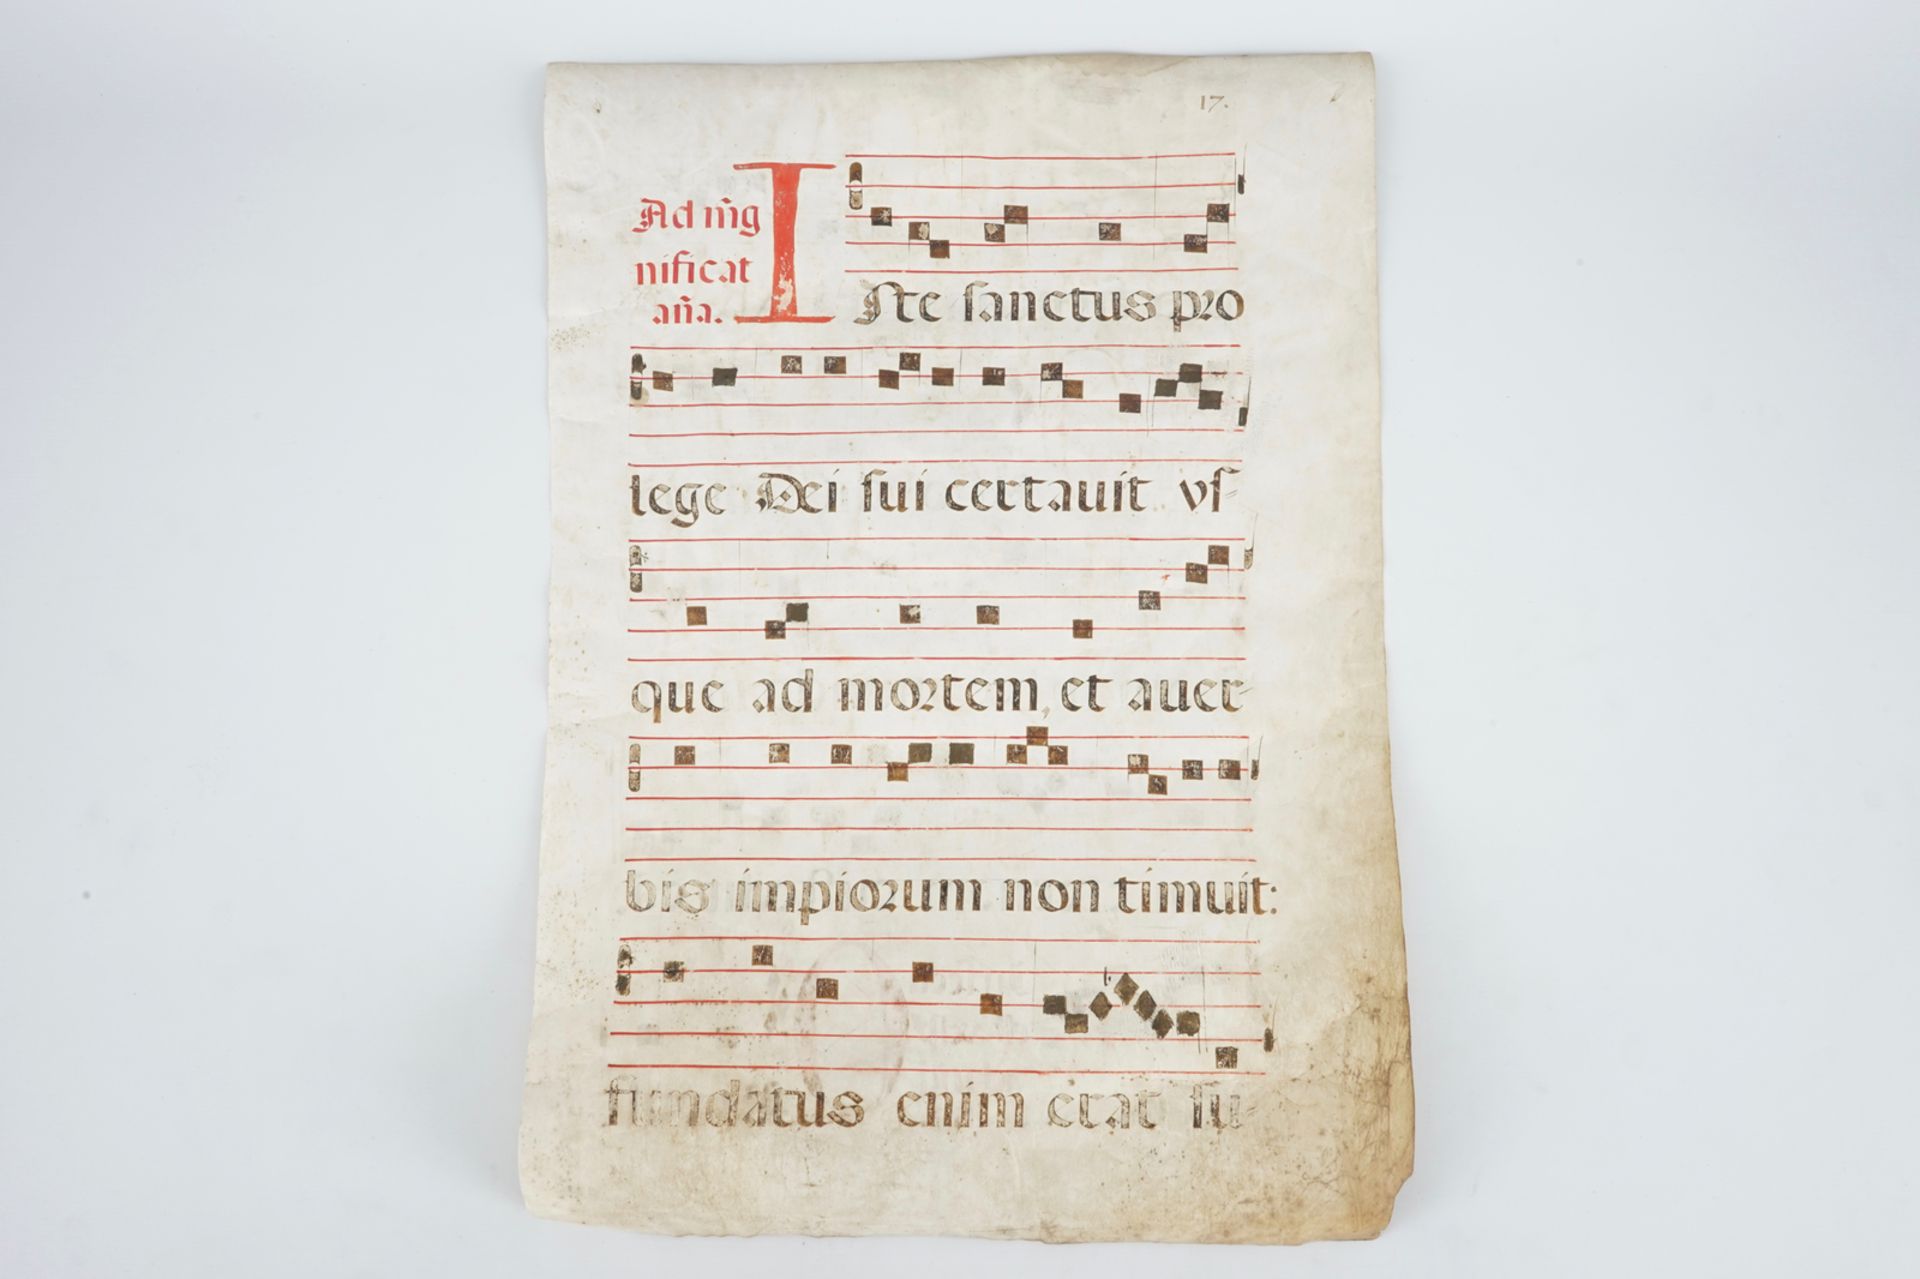 17.
Ad m̃g
nificat
aña.
Iste sanctus pro
lege Dei sui certauit vſ-
que ad mortem, et auer-
bis impiorum non timuit:
fundatus enim erat su-